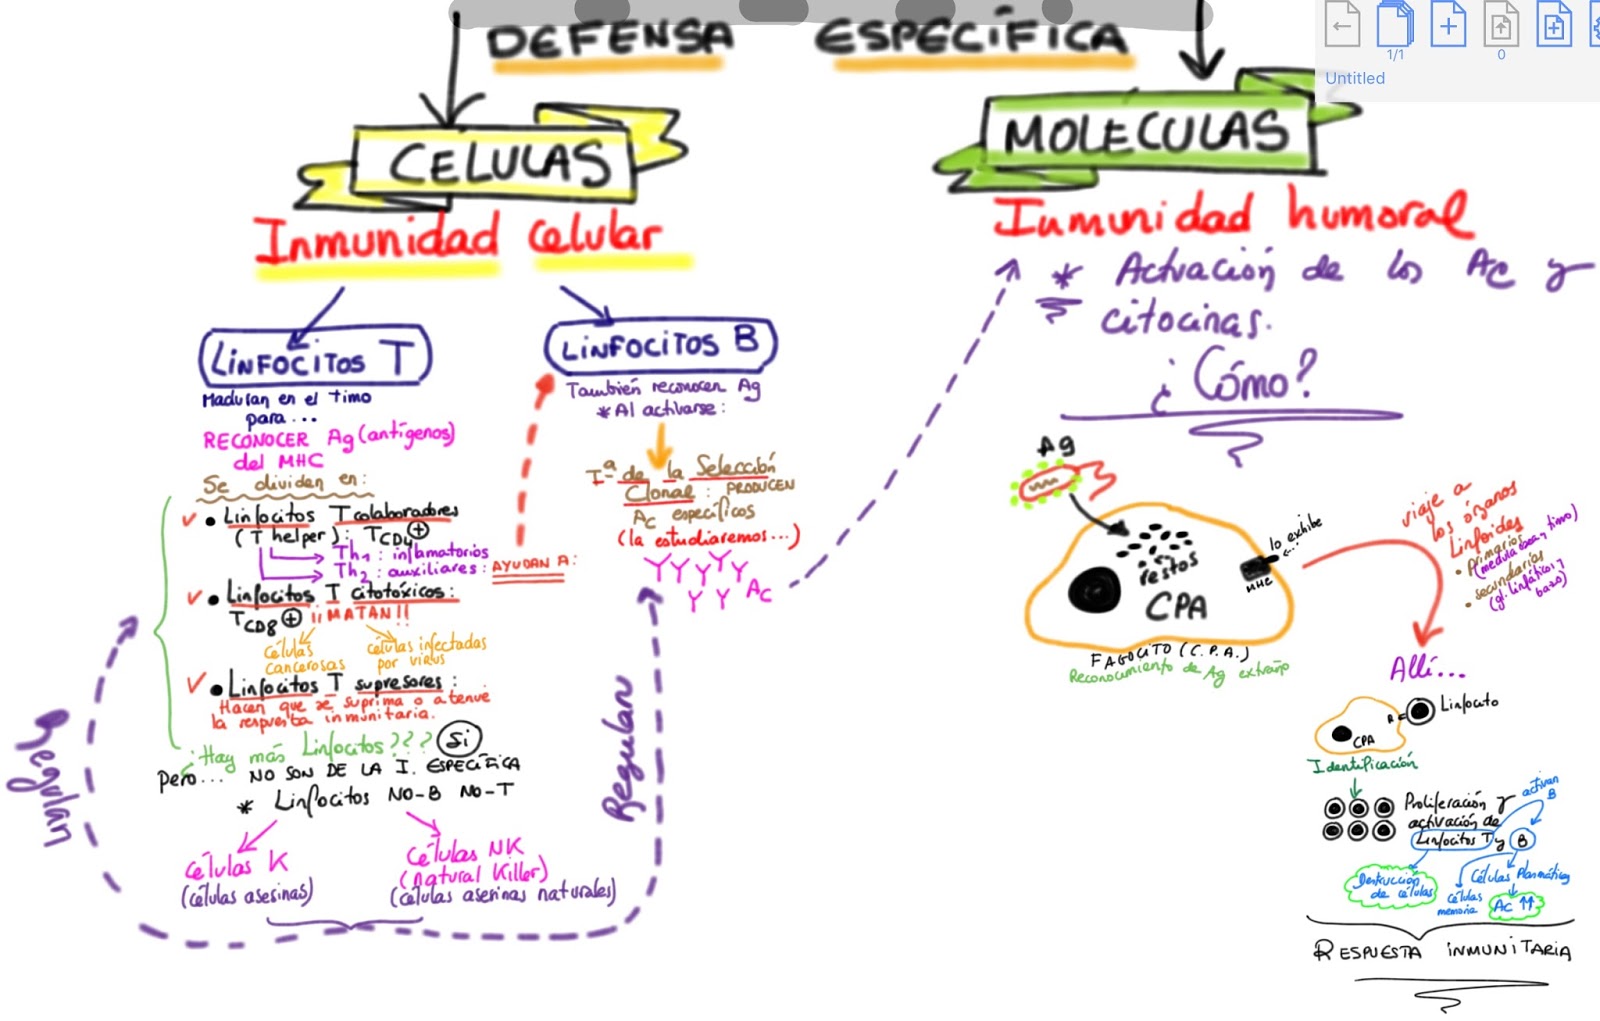 DEFENSA ESPECÍFICA
1/1
0
Untitled
CELULAS
Inmunidad celular
LINFOCITOS T
Maduran en el timo
para...
RECONOCER Ag (antígenos)
del MHC
Se dividen en:
• Linfocitos T colaboradores
(T helper): TCD4+
Th1: inflamatorios
Th2: auxiliares: AYUDAN A:
• Linfocitos T citotóxicos:
TCD8+ ¡¡MATAN!!
células
cancerosas
células infectadas
por virus
• Linfocitos T supresores:
Hacen que se suprima o atenue
la respuesta inmunitaria.
¿Hay más Linfocitos??? Si
Pero... NO SON DE LA I. ESPECÍFICA
* Linfocitos NO-B NO-T
células K
(células asesinas)
células NK
(natural Killer)
(células asesinas naturales)
Regulan
Regulan
LINFOCITOS B
También reconocen Ag
* Al activarse:
Tª de la Selección
Clonal: PRODUCEN
Ac específicos
(la estudiaremos...)
Ac
MOLECULAS
Inmunidad humoral
* Activación de los Ac y
citocinas.
¿Cómo?
Ag
restos
CPA
MHC
lo exhibe
FAGOCITO (C.P.A.)
Reconocimiento de Ag extraño
viaje a
los órganos
linfoides
• Primarios
(medula osea y timo)
• secundarios
(gl. linfáticos y
bazo)
Allí...
CPA
R
Linfocito
Identificación
Proliferación y
activación de
Linfocitos T y B
activan
B
Destrucción
de células
células
memoria
Células Plasmáticas
Ac ↑↑
RESPUESTA INMUNITARIA